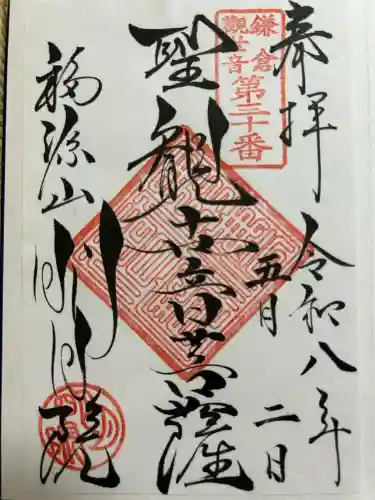 奉拝
令和八年
五月二日
鎌倉
觀世音
第三十番
聖觀世音菩薩
福源山
明月院